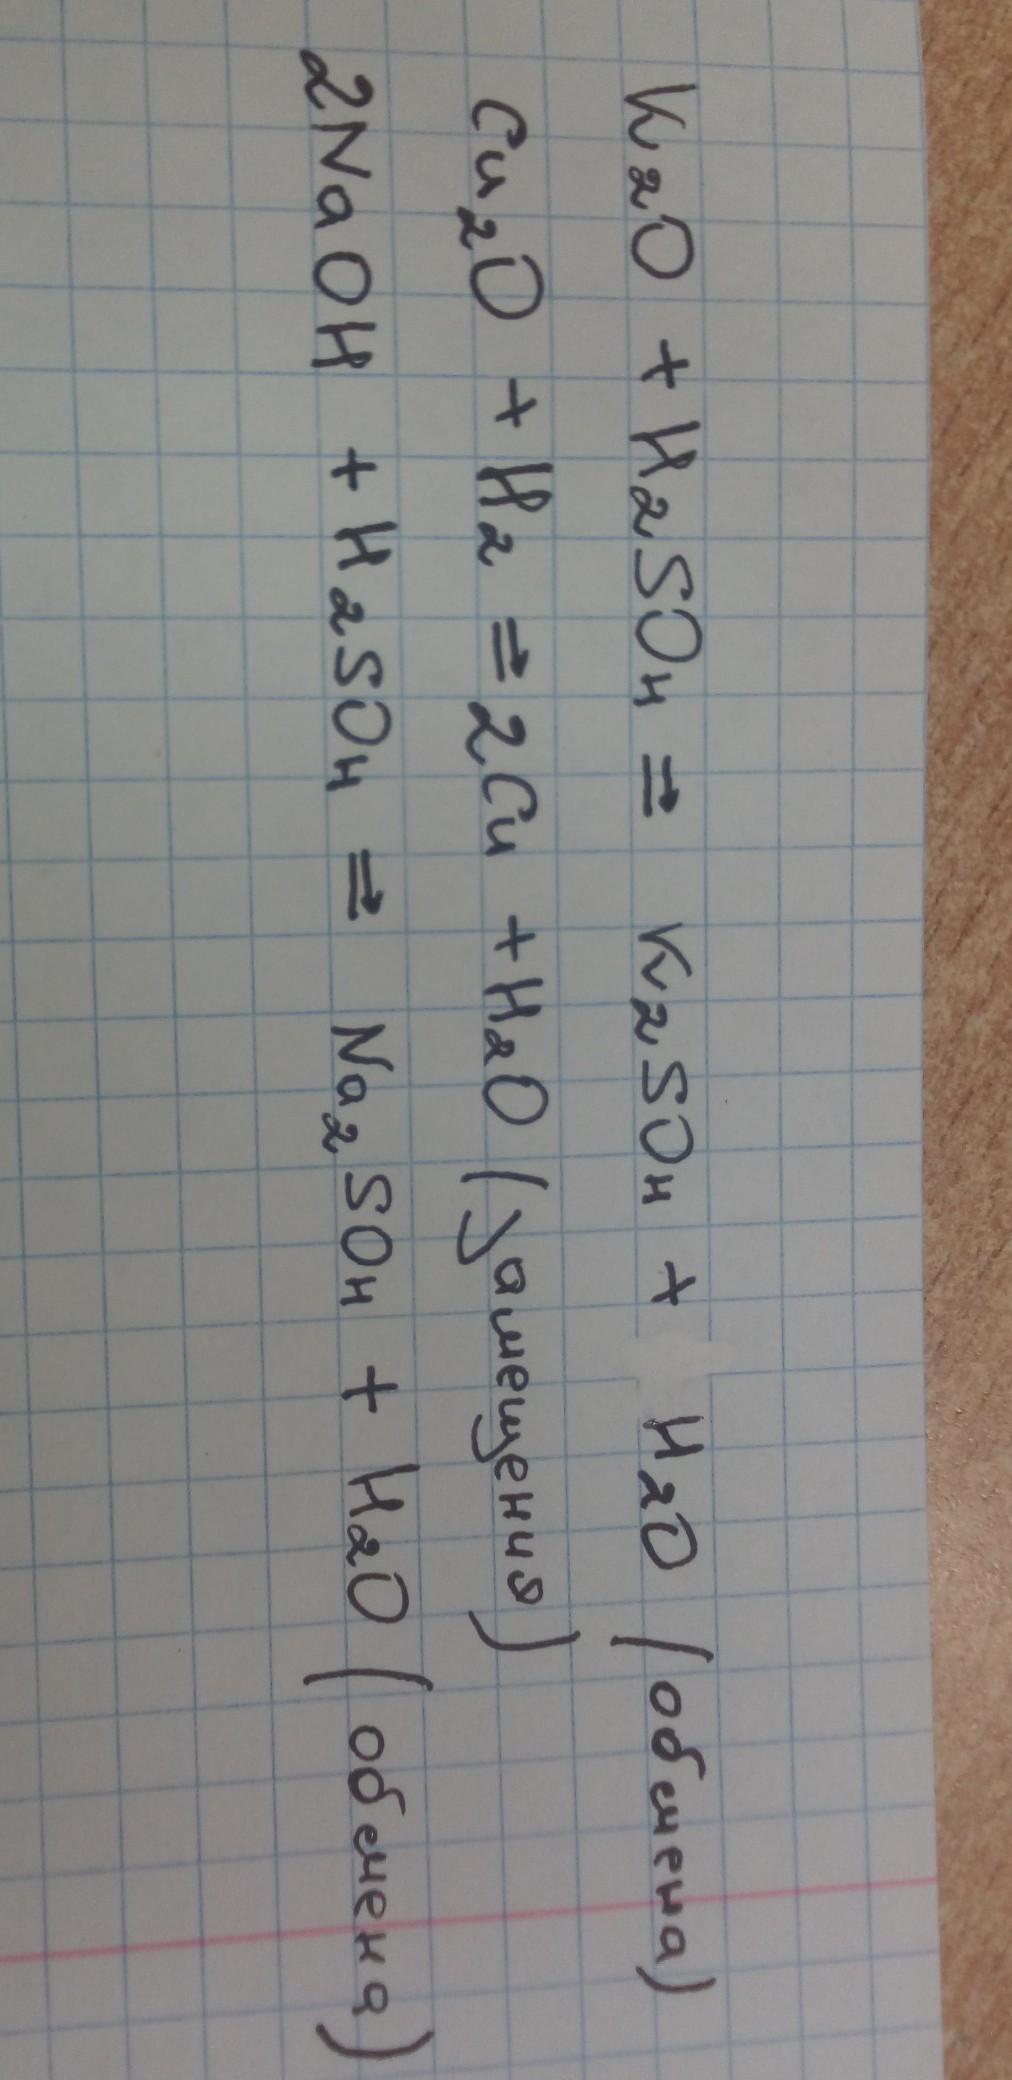 K₂O + H₂SO₄ ⇒ K₂SO₄ + H₂O (обмена)
Cu₂O + H₂ ⇒ 2Cu + H₂O (замещения)
2NaOH + H₂SO₄ ⇒ Na₂SO₄ + H₂O (обмена)